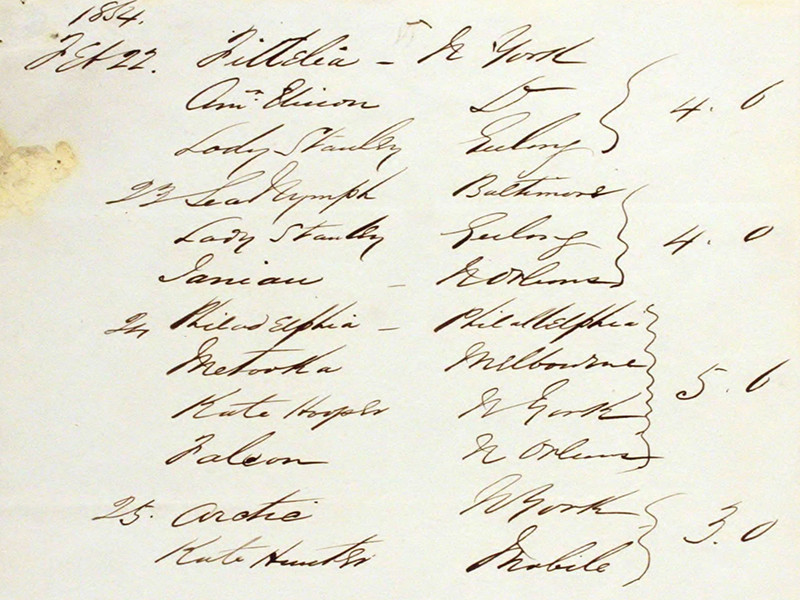 1854.
Feb 22. Fittelia - N York
Amn. Edison Do 4. 6
Lady Stanley Geelong
23 Sea Nymph Baltimore
Lady Stanley Geelong 4. 0
- N Orleans
24 Philadelphia - Philadelphia
Metooka Melbourne 5. 6
Kate Hooper N York
Falcon N Orleans
25. Arctic N York 3. 0
Kate Hunter Mobile